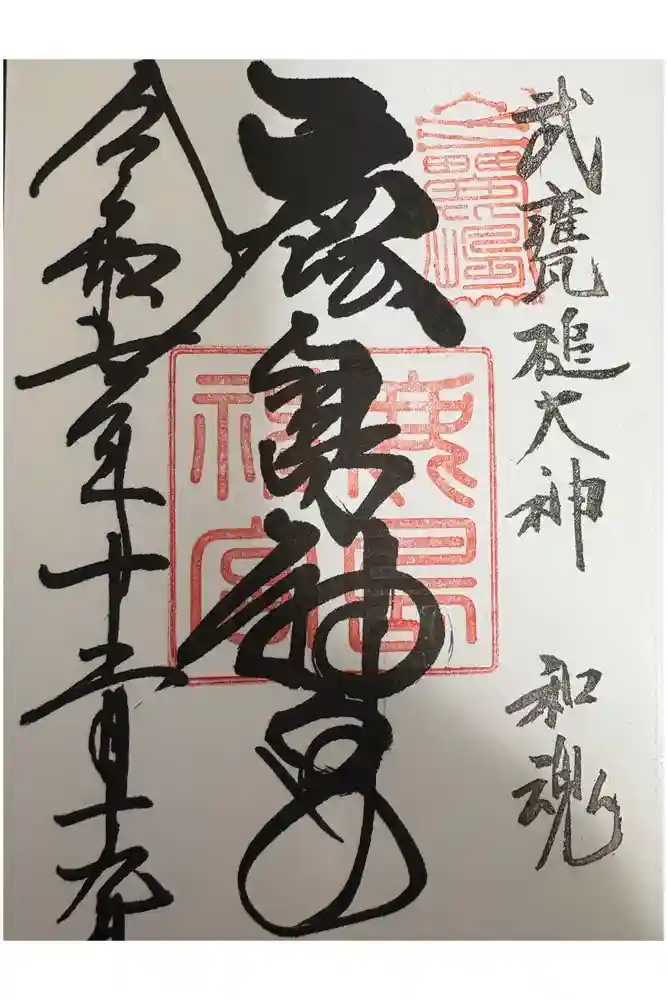 武甕槌大神 和魂
鹿島神宮
令和七年十二月十九日
鹿島
神宮